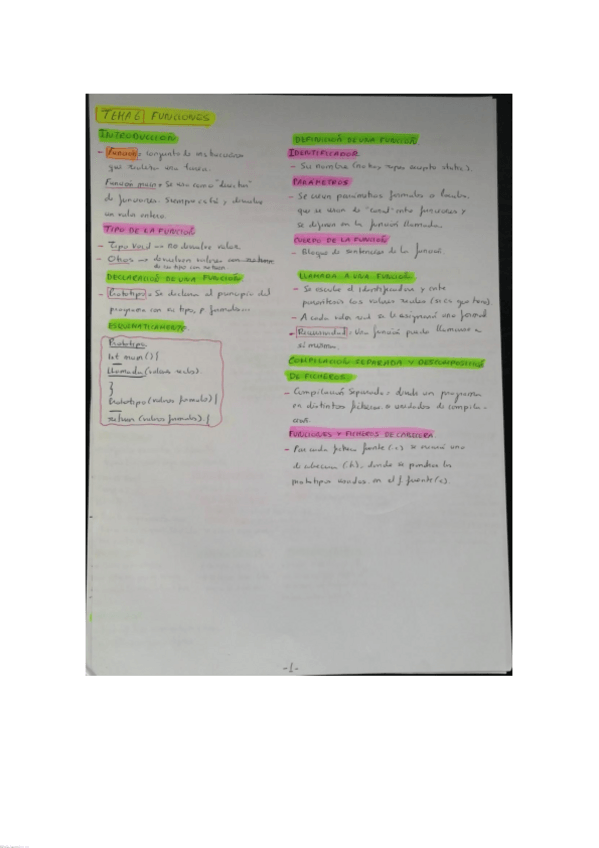 TEMA 6 | FUNCIONES
INTRODUCCIÓN
- Función: conjunto de instrucciones
que realizan una tarea.
Función main: Se usa como "director"
de funciones. Siempre está y devuelve
un valor entero.
TIPO DE LA FUNCIÓN
- Tipo Void → no devuelve valor
- Otros → devuelven valores con
de su tipo con return.
DECLARACIÓN DE UNA FUNCIÓN
- Prototipo: Se declara al principio del
programa con su tipo, p. formales...
ESQUEMÁTICAMENTE
Prototipo
int main () {
Llamada (valores reales).
}
Prototipo (valores formales) {
return (valores formales) {
DEFINICIÓN DE UNA FUNCIÓN
IDENTIFICADOR
- Su nombre (no hay excepto static).
PARÁMETROS
- Se usan parámetros formales o locales,
que se usan de "canal" entre funciones y
se definen en la función llamada.
CUERPO DE LA FUNCIÓN
- Bloque de sentencias de la función.
LLAMADA A UNA FUNCIÓN
- Se escribe el identificador y entre
paréntesis los valores reales (si es que tiene).
- A cada valor real se le asignará uno formal
- Recursividad: Una función puede llamarse a
sí misma.
COMPILACIÓN SEPARADA Y DESCOMPOSICIÓN
DE FICHEROS
- Compilación Separada: dividir un programa
en distintos ficheros o unidades de compila-
ción.
FUNCIONES Y FICHEROS DE CABECERA
- Por cada fichero fuente (.c) se creará uno
de cabecera (.h), donde se pondrán los
prototipos usados en el f. fuente (c).
-1-